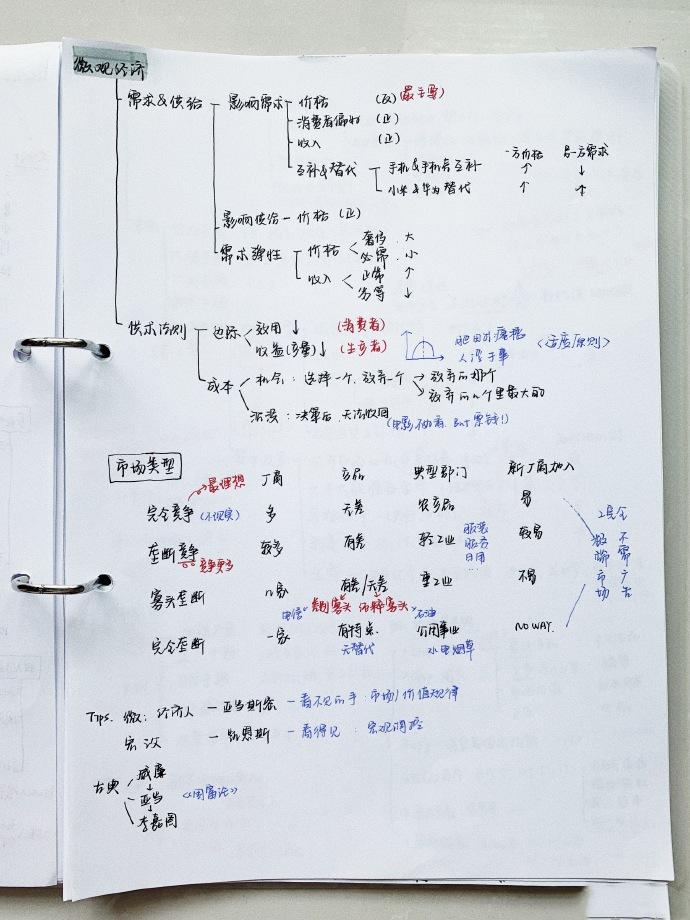 微观经济
需求&供给 影响需求 价格 (反) (最主要)
消费者偏好 (正)
收入 (正)
一方价格 另一方需求
互补&替代 手机&手机壳互补 ↑ ↓
小米&华为替代 ↑ ↑
影响供给 价格 (正)
需求弹性 价格 奢侈 大
必需 小
收入 正常 ↑
劣等 ↓
供求法则 边际 效用 ↓ (消费者)
收益(产量) ↓ (生产者)
人浮于事
<适度原则>
成本 机会: 选择一个, 放弃一个 放弃的那个
放弃的n个里最大的
沉没: 决策后, 无法收回
市场类型 厂商 产品 典型部门 新厂商加入
最理想
完全竞争 (不现实) 多 无差 农产品 易
垄断竞争 较多 有差 轻工业 服装 服务 日用 … 较易
竞争更多
寡头垄断 n家 有差/无差 重工业 不易
电信 差别寡头 纯粹寡头 石油
完全垄断 一家 有特点 公用事业 NO WAY.
无替代 水电烟草
2完全
极端市场
不需广告
Tips: 微: 经济人 — 亚当斯密 — 看不见的手: 市场/价值规律
宏观 — 凯恩斯 — 看得见: 宏观调控
古典 威廉
亚当 《国富论》
李嘉图